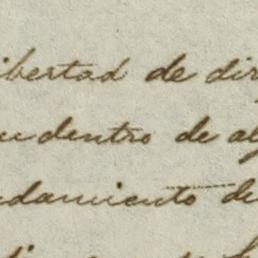 ibertad de dir
dentro de al
damiento de